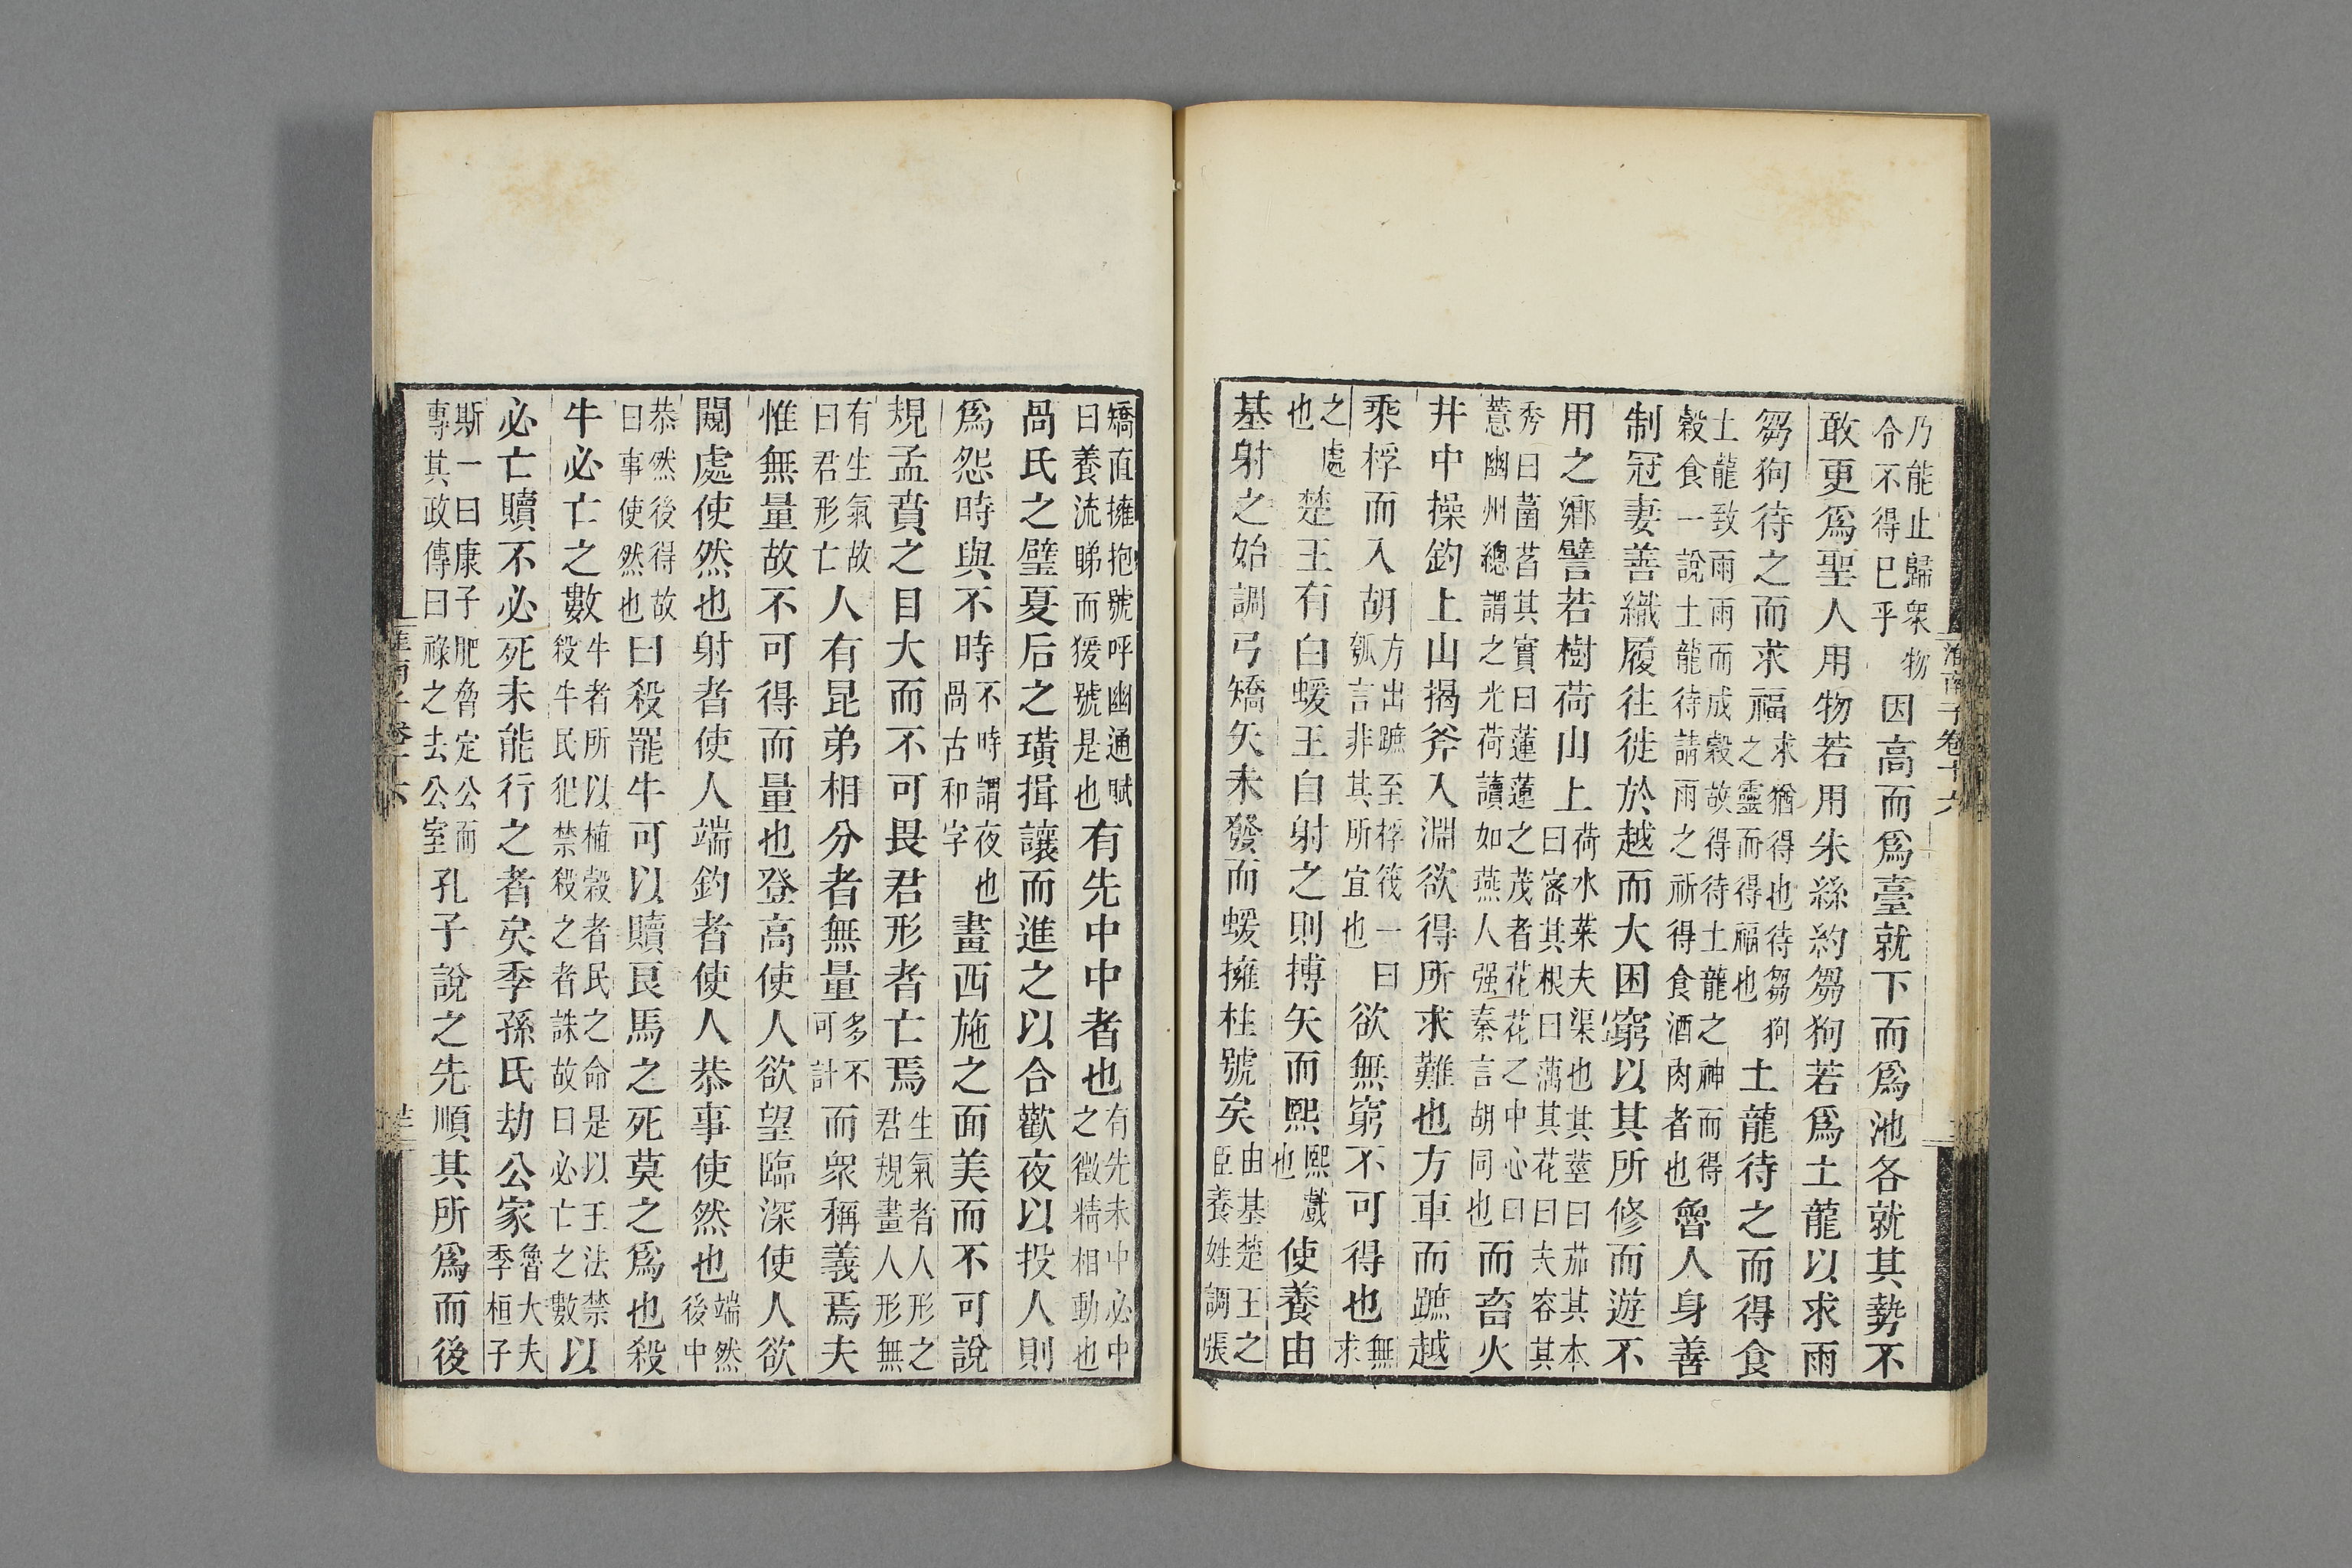 乃能止歸衆物令不得巳乎因高而爲臺就下而爲池各就其勢不
敢更爲聖人用物若用朱絲約芻狗若爲土龍以求雨
芻狗待之而求福求猶得也待芻狗之靈而得福也土龍待之而得食
土龍致雨雨而成穀故得待土龍之神而得穀食一說土龍待請雨之祈得食酒肉者也魯人身善
制冠妻善織履往徙於越而大困窮以其所修而遊不
用之鄉譬若樹荷山上荷水菜夫渠也其莖曰茄其本曰密其根曰藕其花曰夫容其
秀曰菡萏其實曰蓮蓮之茂者花花之中心曰薏幽州總謂之光荷讀如燕人强秦言胡同也而畜火
井中操釣上山揭斧入淵欲得所求難也方車而蹠越
乘桴而入胡方出蹠至桴筏一曰瓠言非其所宜也欲無窮不可得也無求
之處也楚王有白蝯王自射之則搏矢而熙熙戲也使養由
基射之始調弓矯矢未發而蝯擁柱號矣由基楚王之臣養姓調張
矯直擁抱號呼幽通賦曰養流睇而猨號是也有先中中者也有先未中必中之徵精相動也
咼氏之璧夏后之璜揖讓而進之以合歡夜以投人則
爲怨時與不時不時謂夜也咼古和字畫西施之面美而不可說
規孟賁之目大而不可畏君形者亡焉生氣者人形之君規畫人形無
有生氣故曰君形亡人有昆弟相分者無量多不可計而衆稱義焉夫
惟無量故不可得而量也登高使人欲望臨深使人欲
闚處使然也射者使人端釣者使人恭事使然也端然後中
恭然後得故曰事使然也曰殺罷牛可以贖良馬之死莫之爲也殺
牛必亡之數牛者所以植穀者民之命是以王法禁殺牛民犯禁殺之者誅故曰必亡之數以
必亡贖不必死未能行之者矣季孫氏劫公家魯大夫季桓子
斯一曰康子肥脅定公而專其政傳曰祿之去公室孔子說之先順其所爲而後
淮南子卷十六